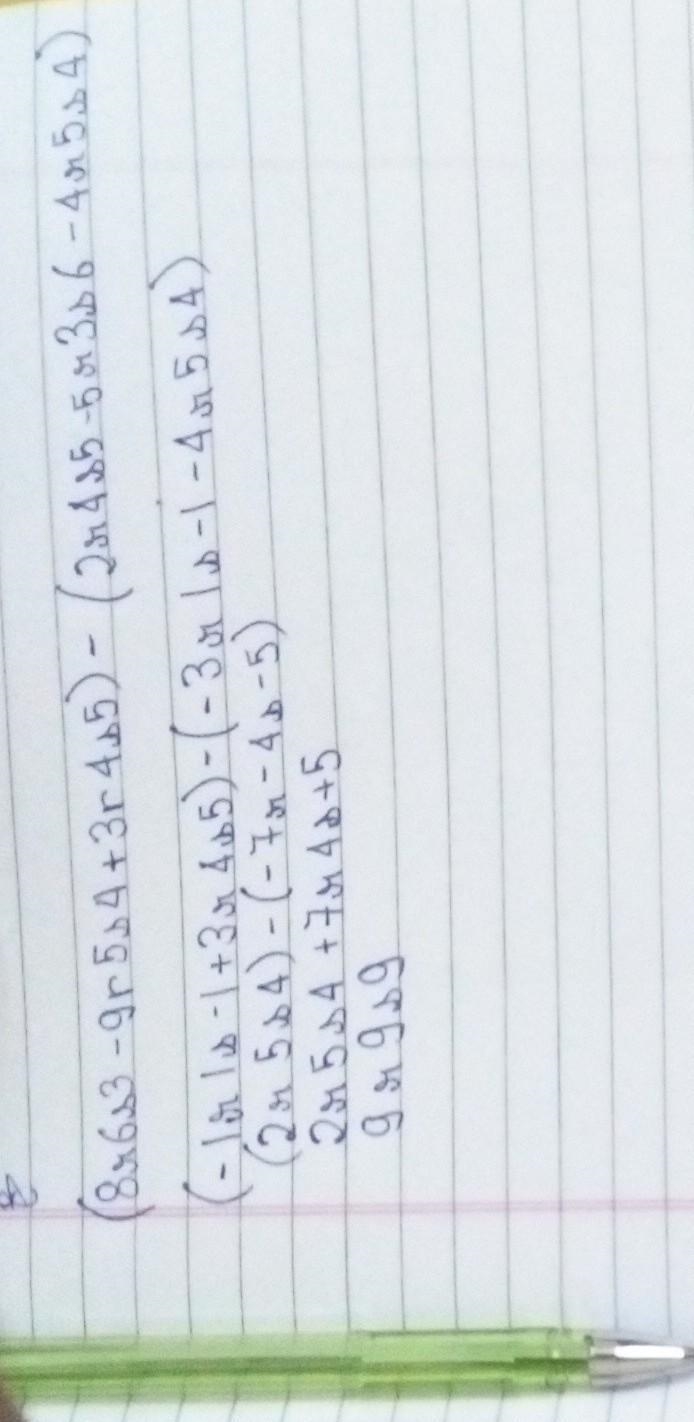 (8r6s3 - 9r5s4 + 3r4s5) - (2r4s5 - 5r3s6 - 4r5s4)
(-1r1s - 1 + 3r4s5) - (-3r1s - 1 - 4r5s4)
(2r5s4) - (-7r - 4s - 5)
2r5s4 + 7r4s + 5
9r9s9